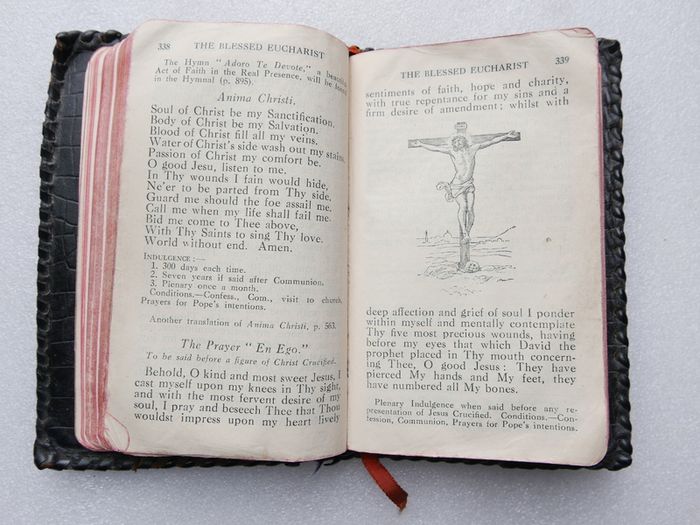 338 THE BLESSED EUCHARIST
The Hymn "Adoro Te Devote," a beautiful
Act of Faith in the Real Presence, will be found
in the Hymnal (p. 895).
Anima Christi.
Soul of Christ be my Sanctification.
Body of Christ be my Salvation.
Blood of Christ fill all my veins.
Water of Christ's side wash out my stains.
Passion of Christ my comfort be.
O good Jesu, listen to me.
In Thy wounds I fain would hide,
Ne'er to be parted from Thy side,
Guard me should the foe assail me.
Call me when my life shall fail me.
Bid me come to Thee above,
With Thy Saints to sing Thy love.
World without end. Amen.
INDULGENCE:—
1. 300 days each time.
2. Seven years if said after Communion.
3. Plenary once a month.
Conditions.—Confess., Com., visit to church,
Prayers for Pope's intentions.
Another translation of Anima Christi, p. 563.
The Prayer "En Ego."
To be said before a figure of Christ Crucified.
Behold, O kind and most sweet Jesus, I
cast myself upon my knees in Thy sight,
and with the most fervent desire of my
soul, I pray and beseech Thee that Thou
wouldst impress upon my heart lively
THE BLESSED EUCHARIST 339
sentiments of faith, hope and charity,
with true repentance for my sins and a
firm desire of amendment; whilst with
deep affection and grief of soul I ponder
within myself and mentally contemplate
Thy five most precious wounds, having
before my eyes that which David the
prophet placed in Thy mouth concern-
ing Thee, O good Jesus: They have
pierced My hands and My feet, they
have numbered all My bones.
Plenary Indulgence when said before any re-
presentation of Jesus Crucified. Conditions.—Con-
fession, Communion, Prayers for Pope's intentions.